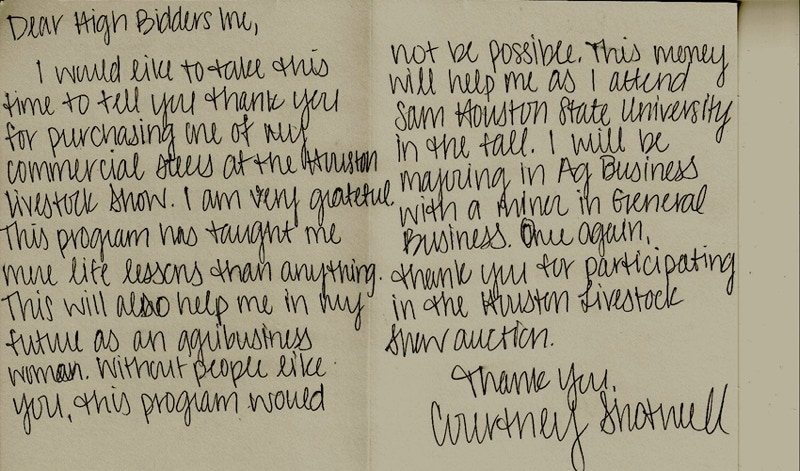 Dear High Bidders Inc,
I would like to take this
time to tell you thank you
for purchasing one of my
commercial steers at the Houston
Livestock Show. I am very grateful.
This program has taught me
more life lessons than anything.
This will also help me in my
future as an agribusiness
woman. Without people like
you, this program would
not be possible. This money
will help me as I attend
Sam Houston State University
in the fall. I will be
majoring in Ag Business
with a minor in General
Business. Once again,
thank you for participating
in the Houston Livestock
Show auction.
Thank you,
Courtney Shotwell